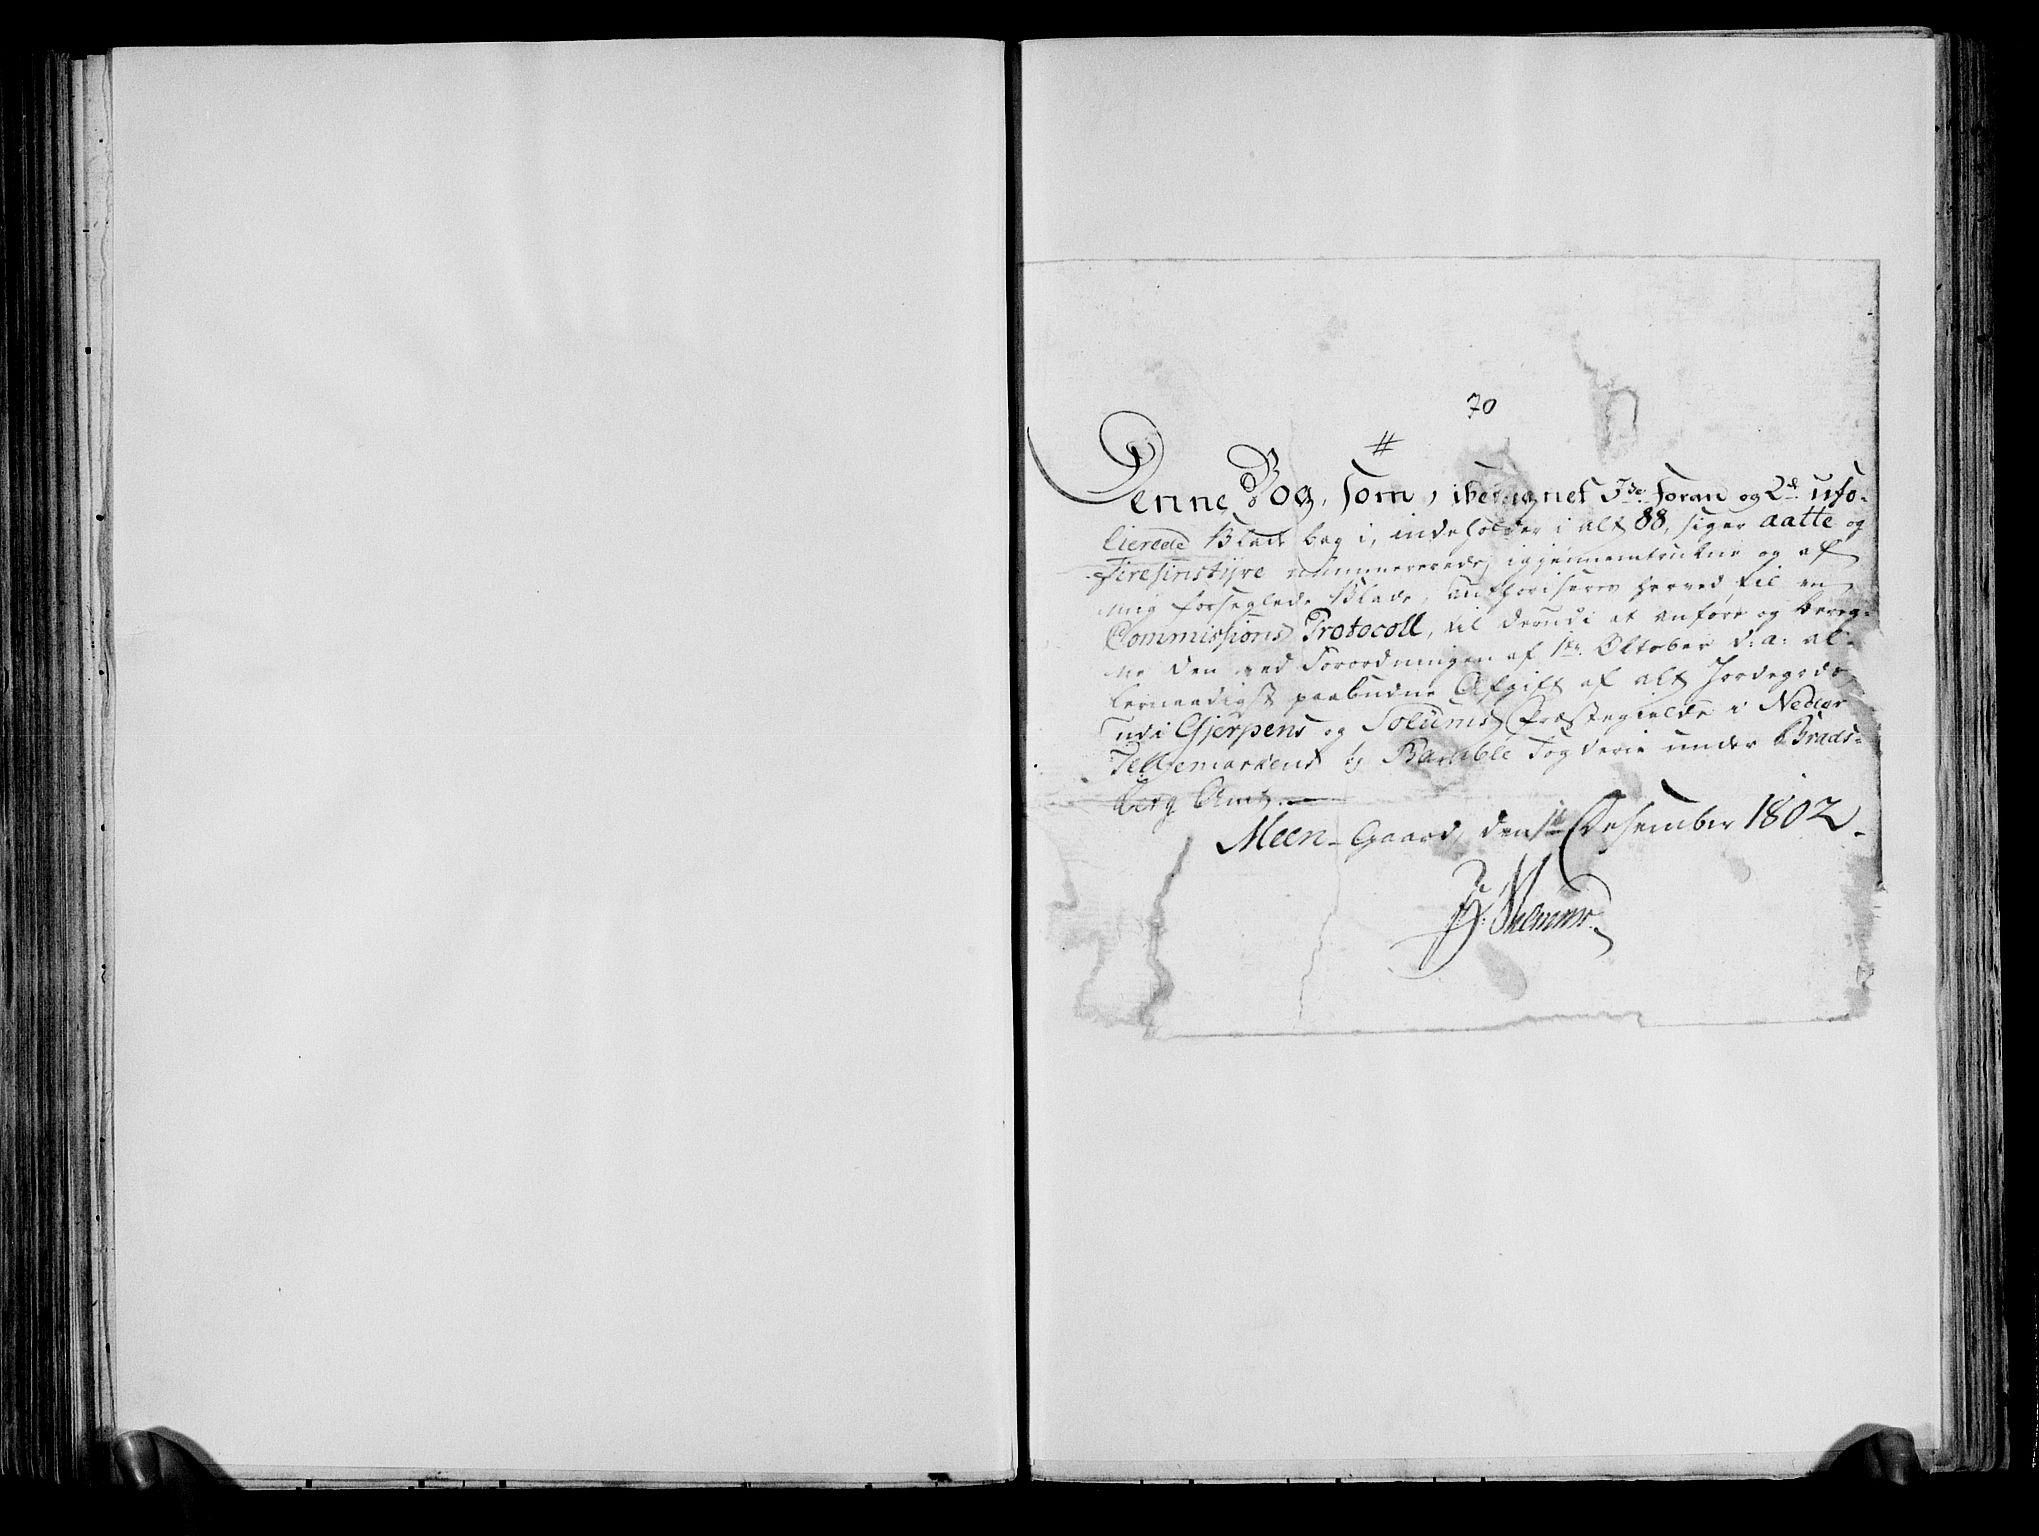 70
#
Denne Bog, som, iberegnet 3de foran og 2de ufo-
lierede Blade bag i, indeholder i alt 88, siger aatte og
firesinstyve nummererede, igjennemtrukne og af
mig forseglede Blade, authoriseres herved til en
Commissions Protocoll, til derudi at anføre og bereg-
ne den ved Forordningen af 1te October d: a: al-
lernaadigst paabudne Afgift af alt Jordegods
udi Gjerpens og Solums Præstegielde i Nedeør
Tellemarkens og Bamble Fogderie under Brads-
berg Amt.
Meen-Gaard, den 1te Desember 1802.